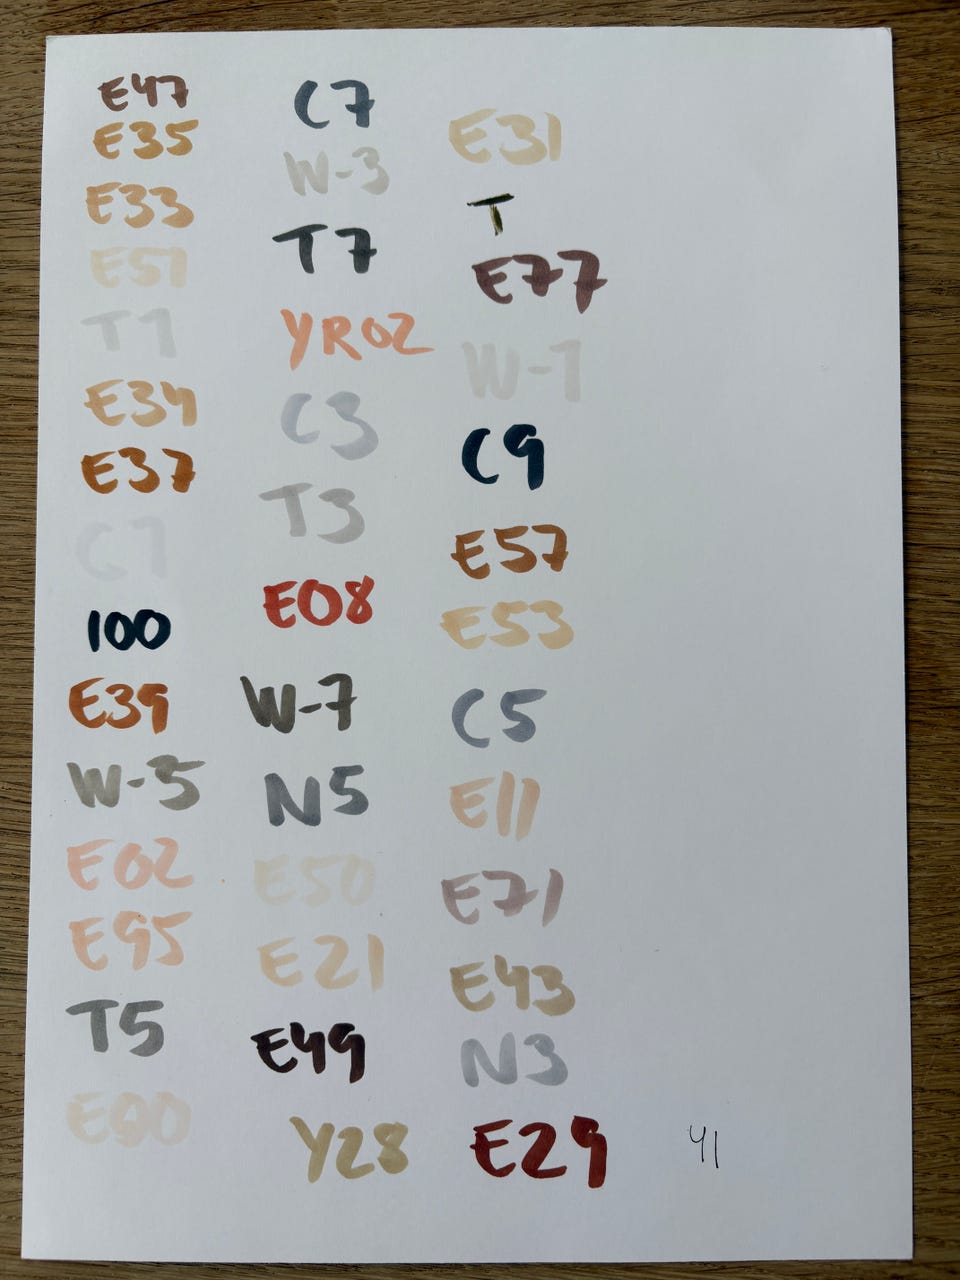 E47
E35
E33
E51
T1
E34
E37
C1
100
E39
W-5
E02
E95
T5
E00
C7
W-3
T7
YR02
C3
T3
E08
W-7
N5
E50
E21
E49
Y28
E31
T
E77
W-1
C9
E57
E53
C5
E11
E71
E43
N3
E29
41